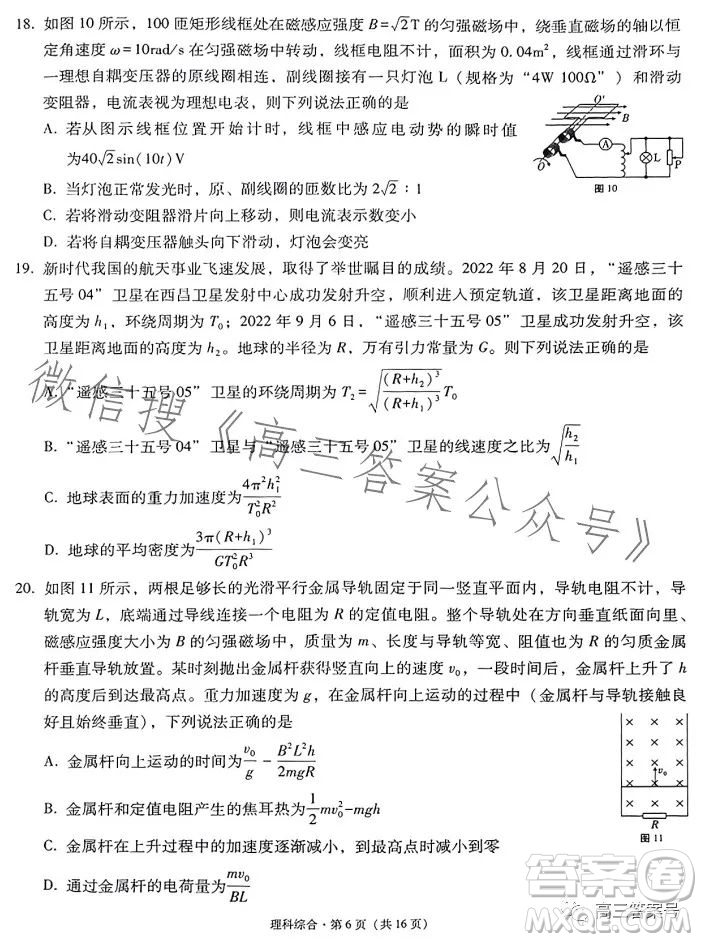 18. 如图 10 所示，100 匝矩形线框处在磁感应强度 B=√2T 的匀强磁场中，绕垂直磁场的轴以恒
定角速度 ω=10rad/s 在匀强磁场中转动，线框电阻不计，面积为 0.04m²，线框通过滑环与
一理想自耦变压器的原线圈相连，副线圈接有一只灯泡 L（规格为“4W 100Ω”）和滑动
变阻器，电流表视为理想电表，则下列说法正确的是
A. 若从图示线框位置开始计时，线框中感应电动势的瞬时值
为40√2sin(10t)V
B. 当灯泡正常发光时，原、副线圈的匝数比为 2√2 : 1
C. 若将滑动变阻器滑片向上移动，则电流表示数变小
D. 若将自耦变压器触头向下滑动，灯泡会变亮
O'
B
O
A
L
P
图 10
19. 新时代我国的航天事业飞速发展，取得了举世瞩目的成绩。2022 年 8 月 20 日，“遥感三十
五号 04”卫星在西昌卫星发射中心成功发射升空，顺利进入预定轨道，该卫星距离地面的
高度为 h₁，环绕周期为 T₀；2022 年 9 月 6 日，“遥感三十五号 05”卫星成功发射升空，该
卫星距离地面的高度为 h₂。地球的半径为 R，万有引力常量为 G。则下列说法正确的是
A. “遥感三十五号 05”卫星的环绕周期为 T₂=√((R+h₂)³/(R+h₁)³)T₀
B. “遥感三十五号 04”卫星与“遥感三十五号 05”卫星的线速度之比为√(h₂/h₁)
C. 地球表面的重力加速度为4π²h₁²/T₀²R²
D. 地球的平均密度为3π(R+h₁)³/GT₀²R³
微信搜《高三答案公众号》
20. 如图 11 所示，两根足够长的光滑平行金属导轨固定于同一竖直平面内，导轨电阻不计，导
轨宽为 L，底端通过导线连接一个电阻为 R 的定值电阻。整个导轨处在方向垂直纸面向里、
磁感应强度大小为 B 的匀强磁场中，质量为 m、长度与导轨等宽、阻值也为 R 的匀质金属
杆垂直导轨放置。某时刻抛出金属杆获得竖直向上的速度 v₀，一段时间后，金属杆上升了 h
的高度后到达最高点。重力加速度为 g，在金属杆向上运动的过程中（金属杆与导轨接触良
好且始终垂直），下列说法正确的是
A. 金属杆向上运动的时间为v₀/g - B²L²h/2mgR
B. 金属杆和定值电阻产生的焦耳热为1/2mv₀²-mgh
C. 金属杆在上升过程中的加速度逐渐减小，到最高点时减小到零
D. 通过金属杆的电荷量为mv₀/BL
v₀
R
图 11
理科综合·第 6 页（共 16 页）
答案圈
高三答案号